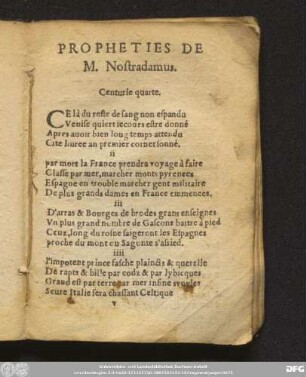 PROPHETIES DE
M. Noſtradamus.
Centurie quarte.
CE là du reſte de ſang non eſpandu
Veniſe quiert ſecours eſtre donné
Apres auoir bien long temps attendu
Cite liuree au premier cornet ſonné.
ii
par mort la France prendra voyage à faire
Claſſe par mer, marcher monts pyrenees
Eſpagne en trouble marcher gent militaire
De plus grands dames en France emmences.
iii
D'arras & Bourges de brodes grans enſeignes
Vn plus grand nombre de Gaſcons battre à pied
Ceux, long du roſne ſaigeront les Eſpagnes
proche du mont ou Sagunte s'aſsied.
iiii
L'impotent prince faſche plainẛts & querelle
De rapts & pille par coqs & par lybicques
Grand eſt par terre par mer infine voyles
Seure Italie ſera chaſſant Celtique
v